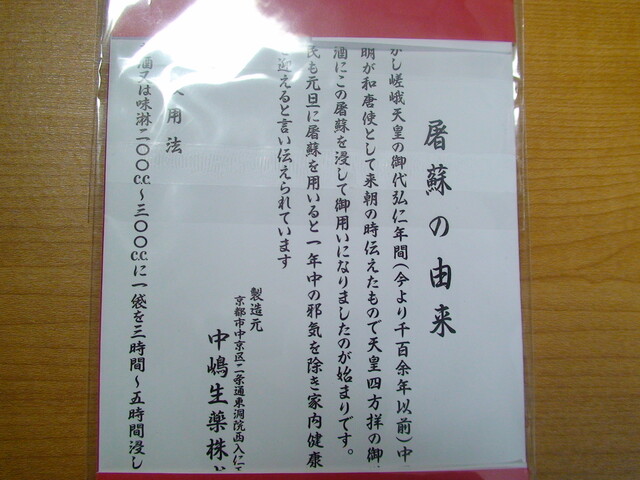 屠蘇の由来
かし嵯峨天皇の御代弘仁年間(今より千百余年以前)中
明が和唐使として来朝の時伝えたもので天皇四方拝の御
酒にこの屠蘇を浸して御用いになりましたのが始まりです。
民も元旦に屠蘇を用いると一年中の邪気を除き家内健康
迎えると言い伝えられています
製造元
京都市中京区二条通東洞院西入仁
中嶋生薬株
用法
酒又は味淋二〇〇c.c.～三〇〇c.c.に一袋を三時間～五時間浸し